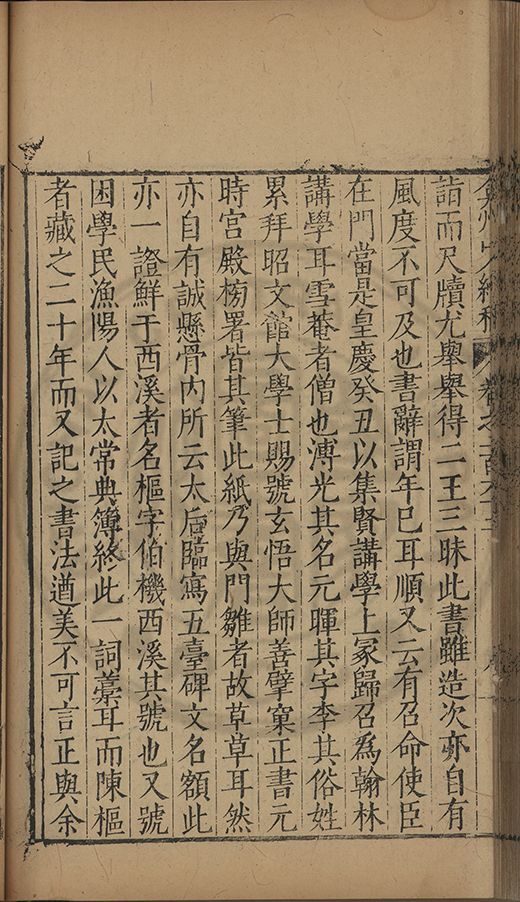 詣而尺牘尤舉舉得二王三昧此書雖造次亦自有
風度不可及也書辭謂年巳耳順又云有召命使臣
在門當是皇慶癸丑以集賢講學上冢歸召爲翰林
講學耳雪菴者僧也溥光其名元暉其字李其俗姓
累拜昭文館大學士賜號玄悟大師善擘窠正書元
時宮殿榜署皆其筆此紙乃與門雛者故草草耳然
亦自有誠懸骨內所云太后臨寫五臺碑文名額此
亦一證鮮于西溪者名樞字伯機西溪其號也又號
困學民漁陽人以太常典簿終此一詞藁耳而陳樞
者藏之二十年而又記之書法遒美不可言正與余